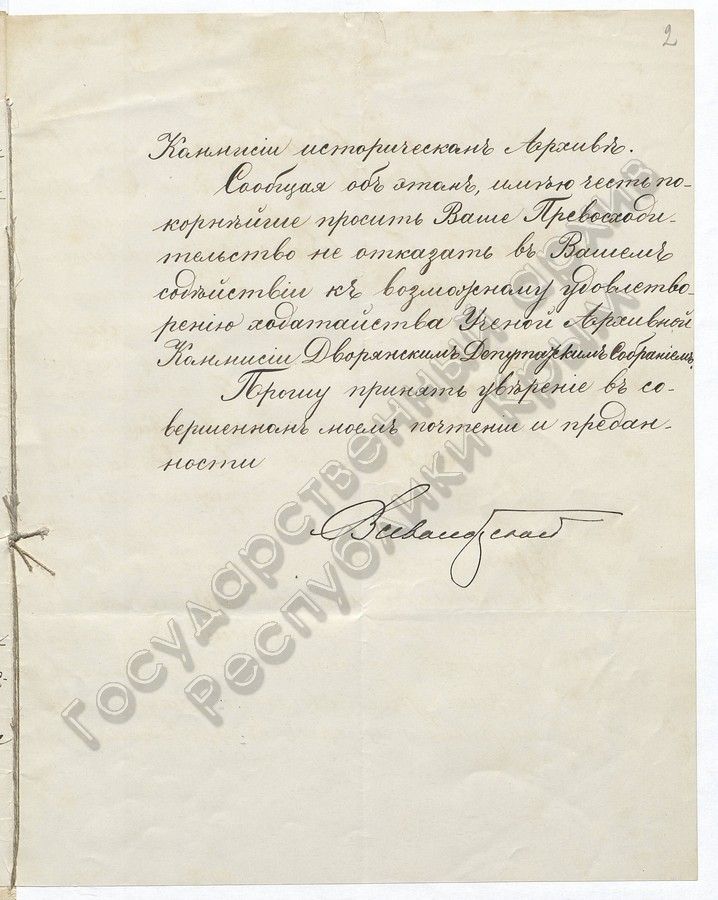 2
Коммисіи историческомъ Архивѣ.
Сообщая объ этомъ, имѣю честь по-
корнѣйше просить Ваше Превосходи-
тельство не отказать въ Вашемъ
содѣйствіи къ возможному удовлетво-
ренію ходатайства Ученой Архивной
Коммисіи Дворянскимъ Депутатскимъ Собраніемъ.
Прошу принять увѣреніе въ со-
вершенномъ моемъ почтеніи и предан-
ности
Государственный архив
Республики Крым